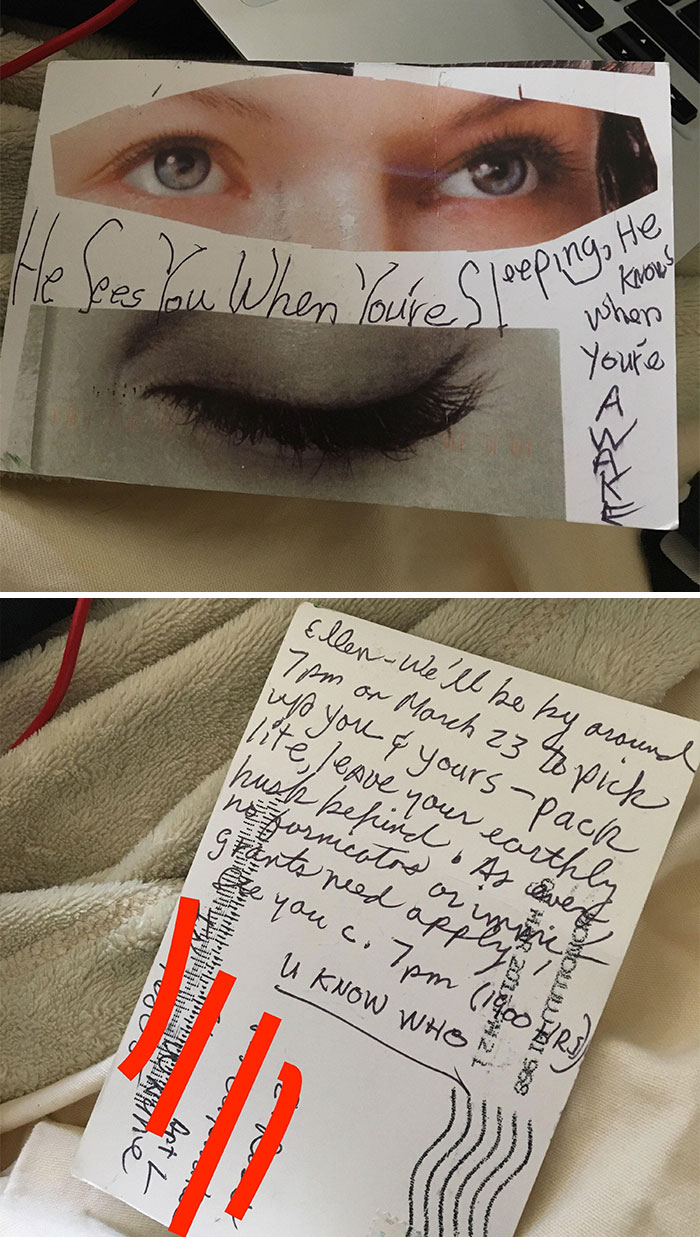 He Sees You When You're Sleeping, He
knows
when
you're
AWAKE
Ellen - We'll be by around
7pm on March 23 to pick
up you & yours - pack
lite, leave your earthly
husk behind. As ever,
no fornicators or immi-
grants need apply!
See you c. 7pm (1900 HRS)
U KNOW WHO
HONOLULU HI 968
Apt L